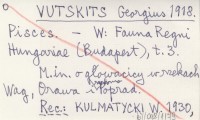 VUTSKITS Georgius 1918.
Pisces. - W: Fauna Regni
Hungariae (Budapest), t. 3.
M.in. o głowacicy w rzekach
Wag, Orawa i Poprad.
Rec: KULMATYCKI W. 1930,